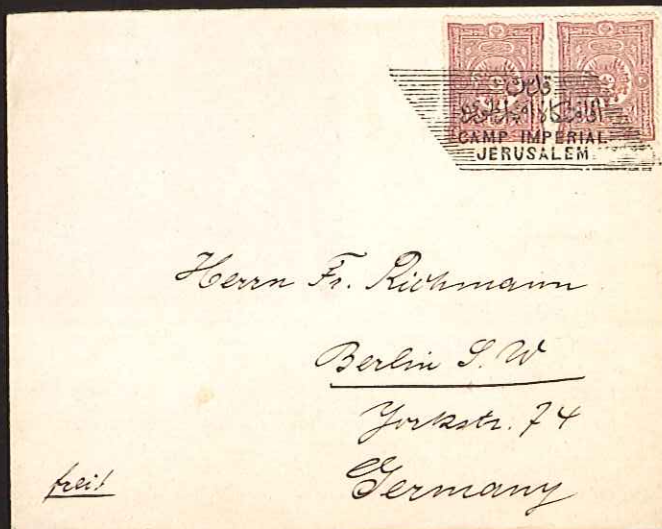 قدس
CAMP IMPERIAL
JERUSALEM
Herrn Fr. Richmann
Berlin S. W
Yorkstr. 74
Germany
frei!